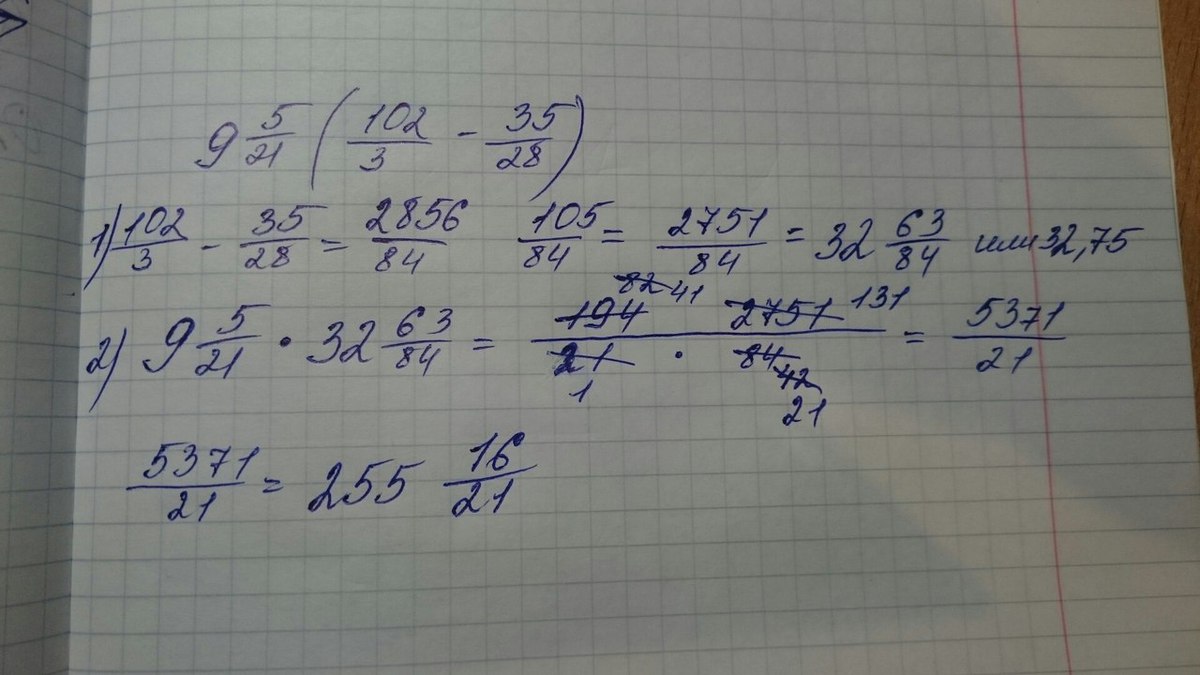 9 5/21 ( 102/3 - 35/28 )
1) 102/3 - 35/28 = 2856/84 105/84 = 2751/84 = 32 63/84 или 32,75
2) 9 5/21 · 32 63/84 = 194 82 41 2751 131 / 21 1 · 84 42 21 = 5371/21
5371/21 = 255 16/21